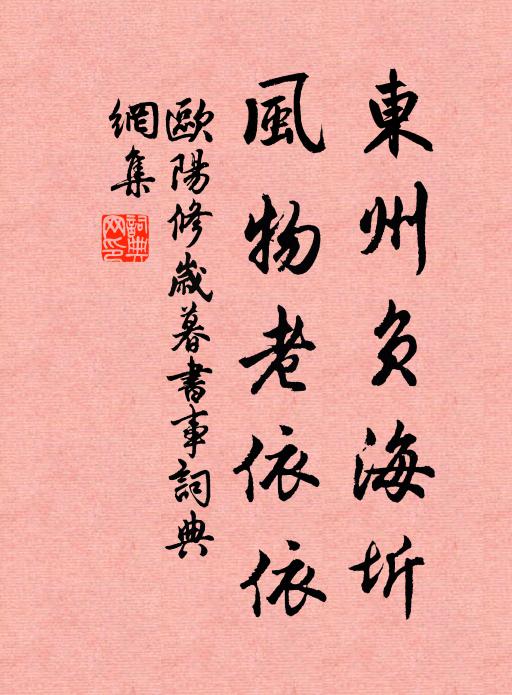 東州負海圻
風物老依依
歐陽修歲暮書事詞典
網集
詞典
网印